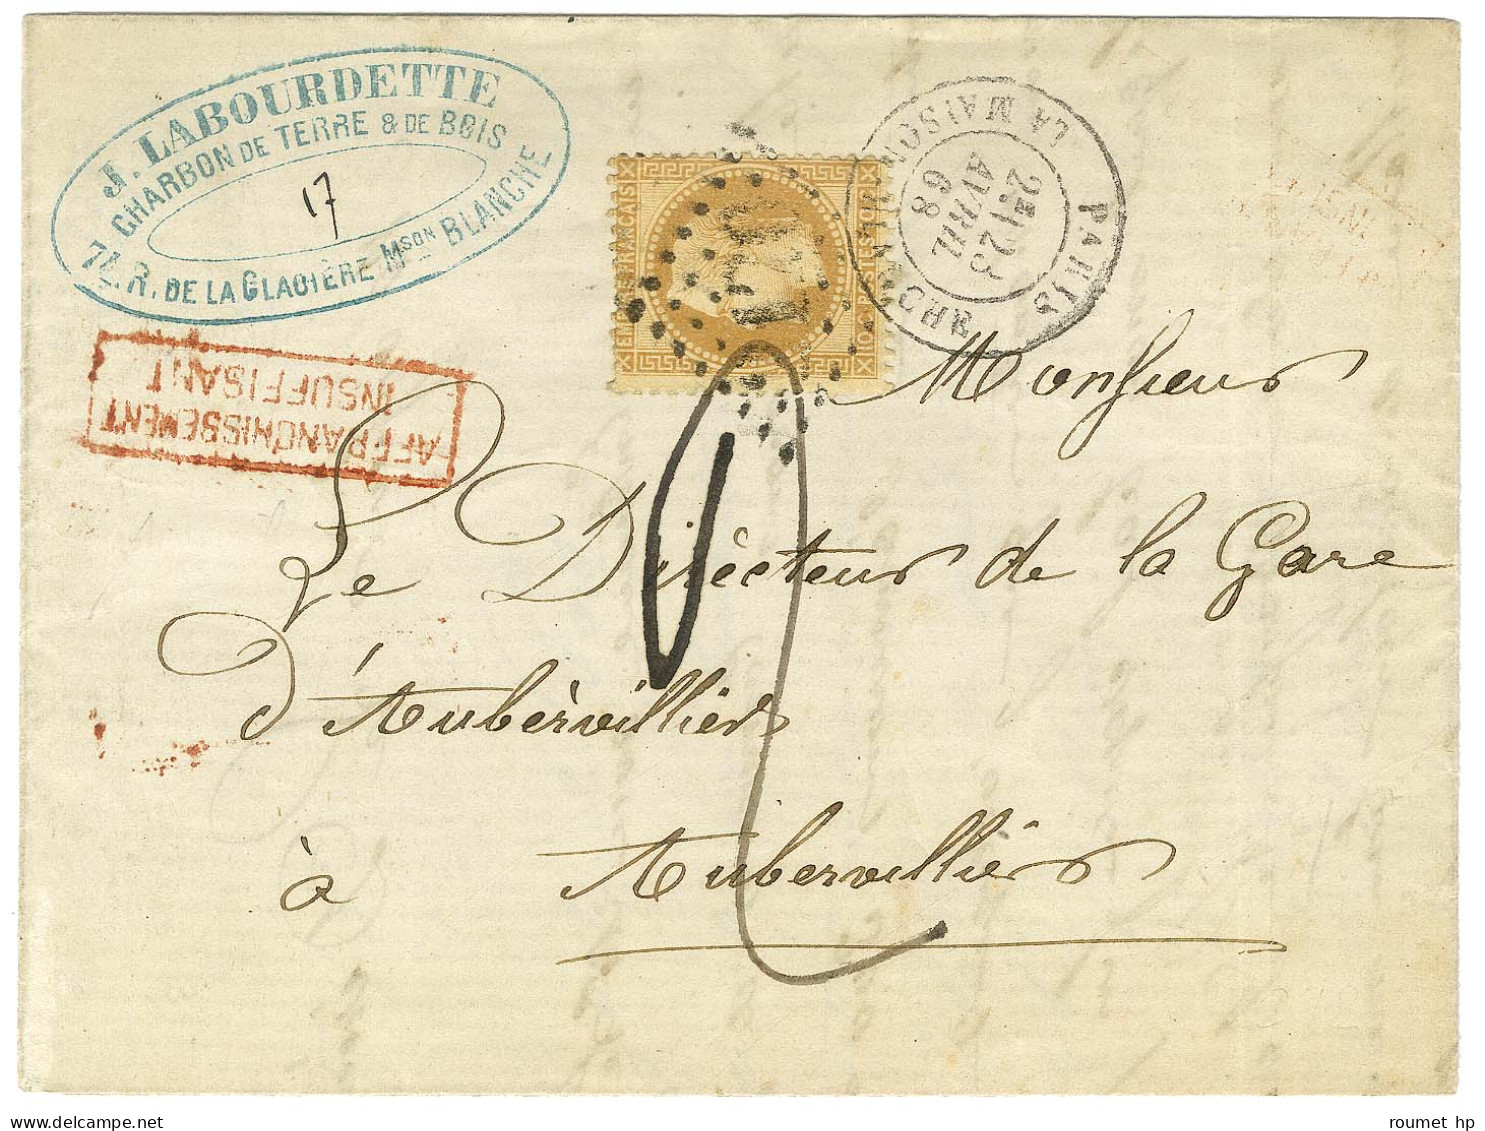 J. LABOURDETTE
CHARBON DE TERRE & DE BOIS
17
74. R. DE LA GLACIÈRE Mson BLANCHE
AFFRANCHISSEMENT
INSUFFISANT
EMPIRE FRANÇAIS
10 C POSTES 10 C
PARIS
LA MAISON BLANCHE
2E
23
AVRIL
68
2
Monsieur
Le Directeur de la Gare
d'Aubervilliers
à Aubervilliers
roumet hp